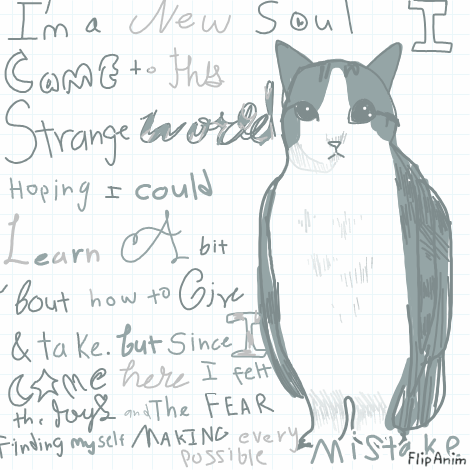 I'm a New Soul I
Came to this
Strange world
Hoping I could
Learn A bit
'bout how to Give
& take. but Since I
Come here I felt
the Joys and The FEAR
Finding myself MAKING every
possible Mistake
FlipAnim